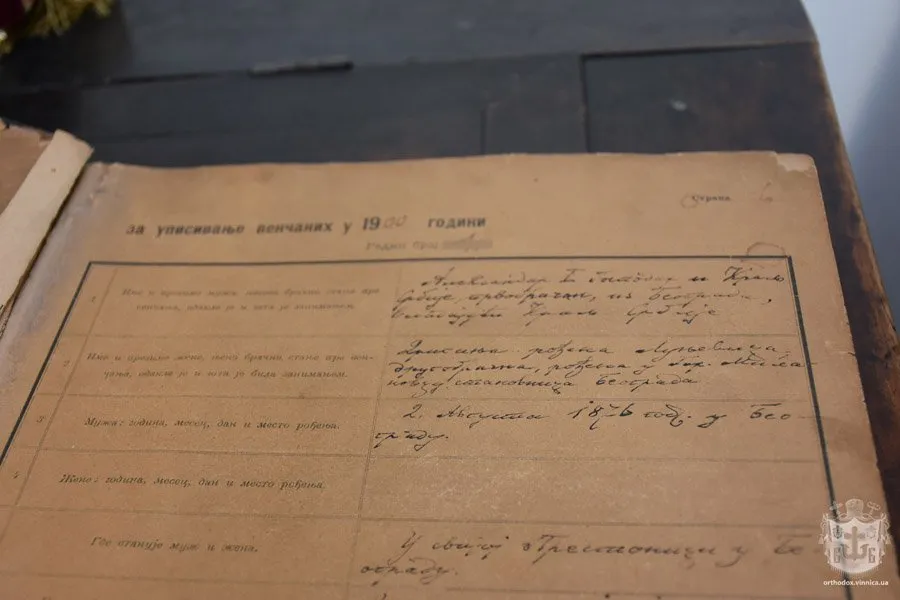 Страна 6
за уписивање венчаних у 1900 години
Редни број
1 Име и презиме мужа, његово брачно стање пре
венчања, одакле је и шта је занимањем.
Александар I Обреновић и Краљ
Србије, првобрачан, из Београда,
Краљ Србије
2 Име и презиме жене, њено брачно стање пре вен-
чања, одакле је и шта је било занимањем.
рођена Луњевица
другобрачна, рођена у Гор. Мила-
новцу становница Београда
3 Мужа: година, месец, дан и место рођења.
2. Августа 1876 год. у Бео-
граду.
4 Жене: година, месец, дан и место рођења.
Где станује муж и жена.
У својој Престоници у Бе-
ограду.
orthodox.vinnica.ua